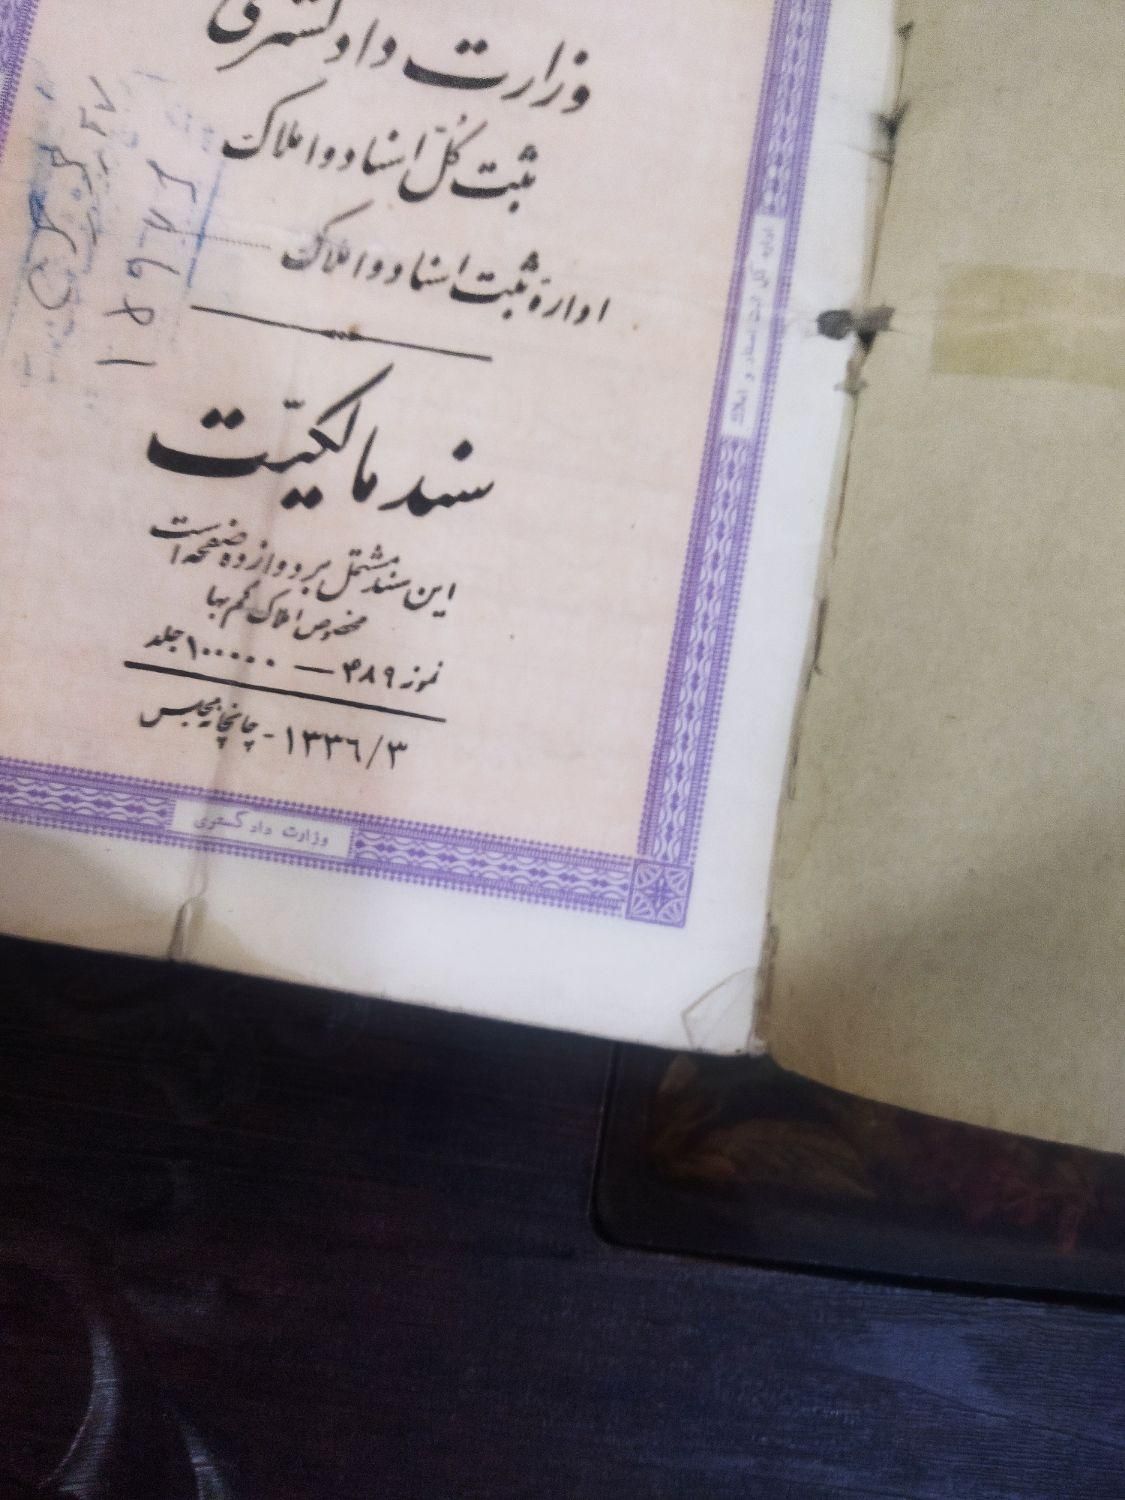 وزارت دادگستری
ثبت کلّ اسناد و املاک
اداره ثبت اسناد و املاک
سند مالکیّت
این سند مشتمل بر دوازده صفحه است
مخصوص املاک کم بها
نمونه ۴۸۹ — ۱۰۰۰۰۰ جلد
۱۳۳۶/۳ - چاپخانه مجلس
وزارت دادگستری
اداره کل ثبت اسناد و املاک